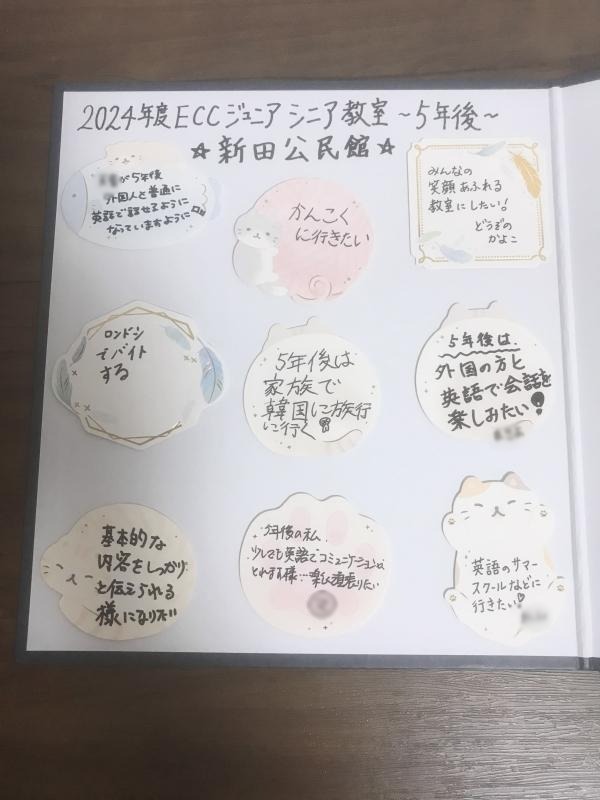 2024年度ECCジュニアシニア教室〜5年後〜
☆新田公民館☆
が5年後
外国人と普通に
英語で話せるように
なっていますように
かんこく
に行きたい
みんなの
笑顔あふれる
教室にしたい!
どうぞの
かよこ
ロンドン
でバイト
する
5年後は
家族で
韓国に旅行
に行く
5年後は
外国の方と
英語で会話を
楽しみたい!
基本的な
内容をしっかり
と伝えられる
様になりたい
5年後の私
少しでも英語でコミュニケーションが
とれます様…楽しく頑張りたい
英語のサマー
スクールなどに
行きたい♡